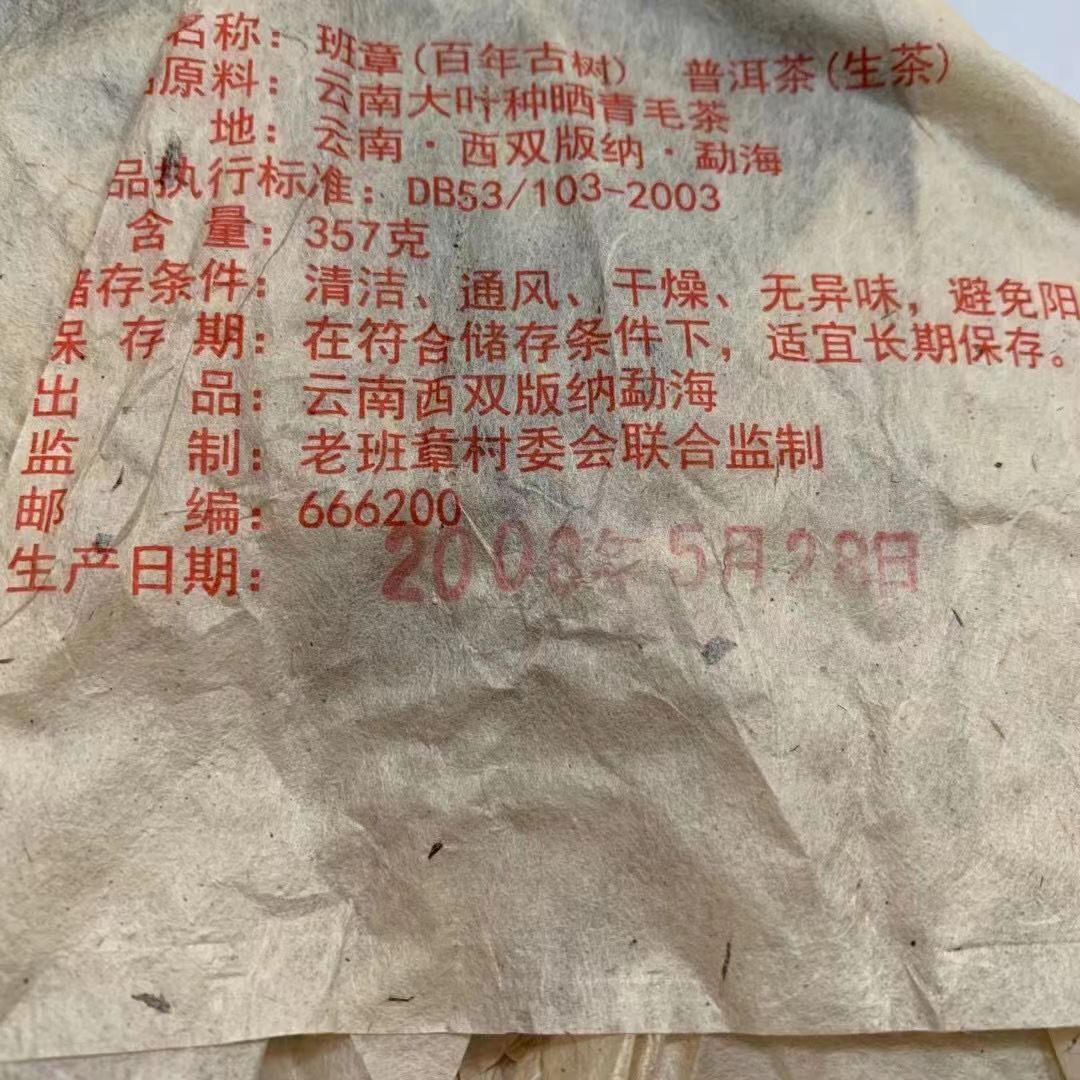 名称：班章(百年古树) 普洱茶(生茶)
原料：云南大叶种晒青毛茶
地：云南·西双版纳·勐海
品执行标准：DB53/103-2003
含 量：357克
储存条件：清洁、通风、干燥、无异味，避免阳
保 存 期：在符合储存条件下，适宜长期保存。
出 品：云南西双版纳勐海
监 制：老班章村委会联合监制
邮 编：666200
生产日期：2008年5月28日